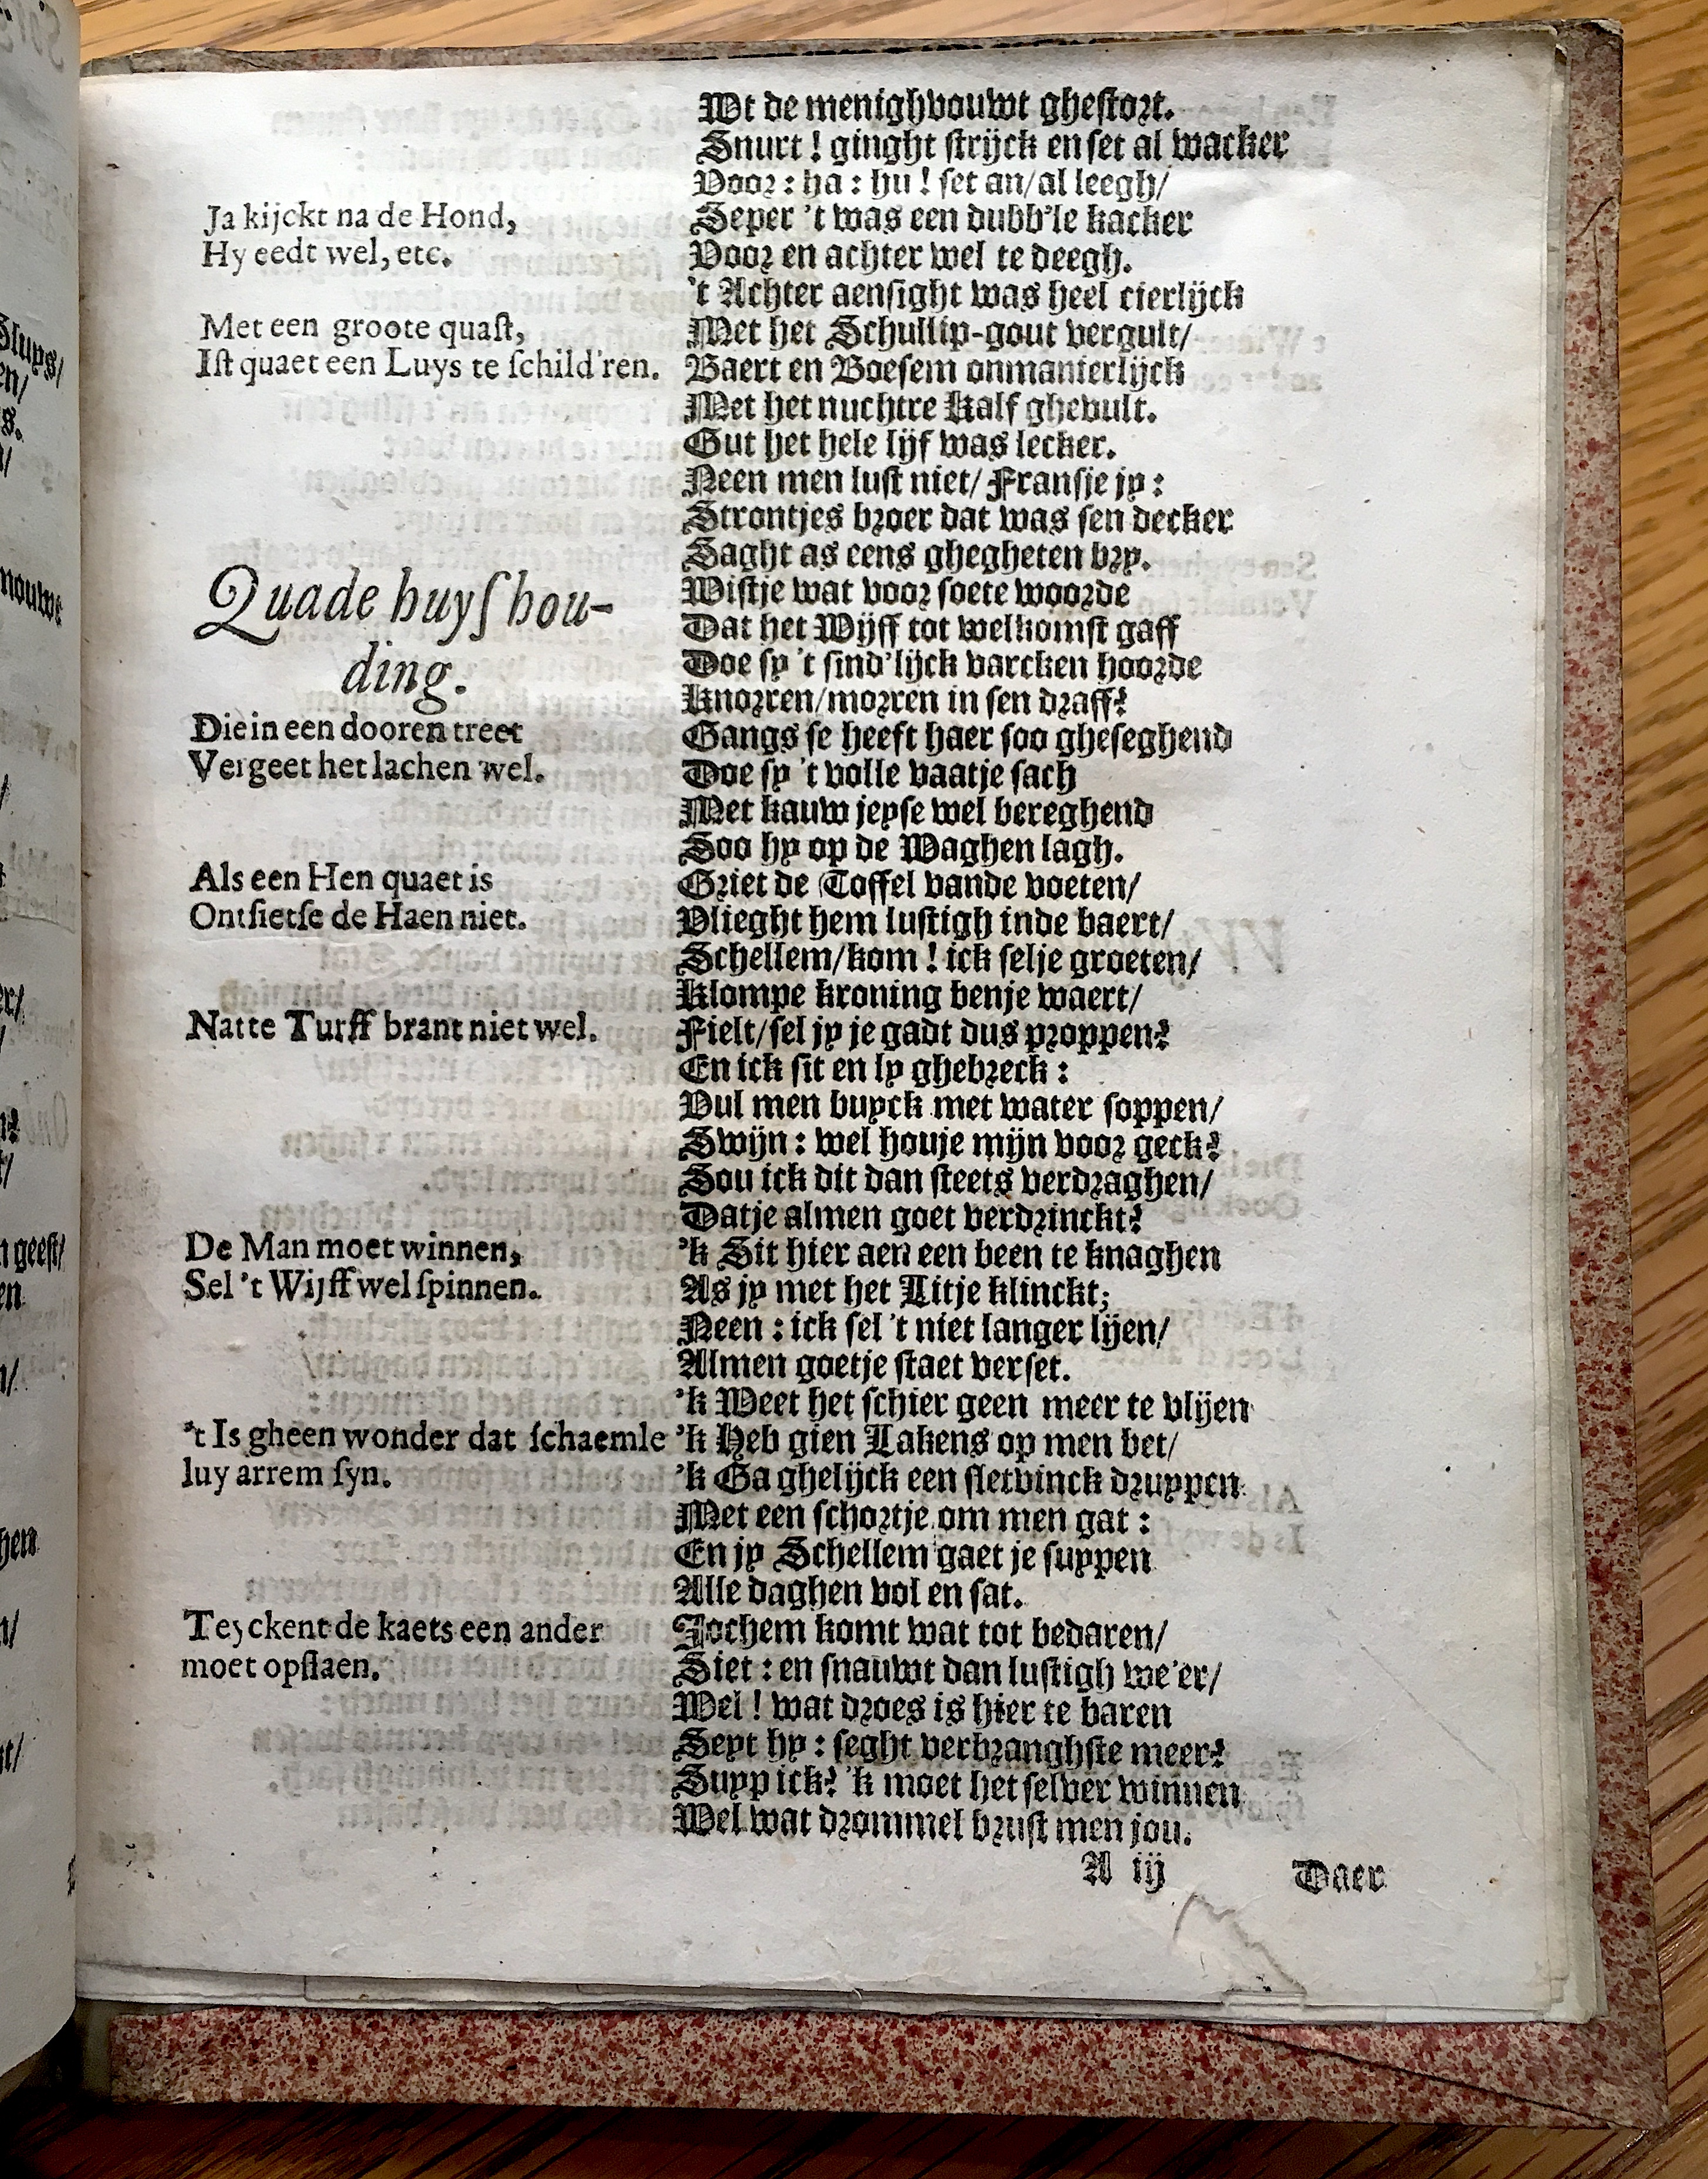 Wt de menighvouwt ghestort.
Snurt ! ginght strijck en set al wacker
Voor : ha : hu ! set an/ al leegh/
Ja kijckt na de Hond,
Seper 't was een dubb'le kacker
Hy eedt wel, etc.
Voor en achter wel te deegh.
't Achter aensight was heel cierlijck
Met een groote quaſt,
Met het Schullip-gout vergult/
Iſt quaet een Luys te ſchild'ren.
Baert en Boesem onmanierlijck
Met het nuchtre Kalf ghevult.
Gut het hele lijf was lecker.
Neen men lust niet/ Fransje jy :
Strontjes broer dat was sen decker
Saght as eens ghegheten bry.
Quade huyſhou-
ding.
Wistje wat voor soete woorde
Dat het Wijff tot welkomst gaff
Doe sy 't sind'lijck varcken hoorde
Knorren/ morren in sen draff?
Die in een dooren treet
Gangs se heeft haer soo gheseghend
Vergeet het lachen wel.
Doe sy 't volle vaatje sach
Met kauw jeyse wel bereghend
Soo hy op de Waghen lagh.
Als een Hen quaet is
Griet de Toffel vande voeten/
Ontſietſe de Haen niet.
Vlieght hem lustigh inde baert/
Schellem/ kom ! ick selje groeten/
Klompe kroning benje waert/
Natte Turff brant niet wel.
Fielt/ sel jy je gadt dus proppen?
En ick sit en ly ghebreck :
Vul men buyck met water soppen/
Swijn : wel houje mijn voor geck?
Sou ick dit dan steets verdraghen/
Datje almen goet verdrinckt?
De Man moet winnen,
'k Sit hier aen een been te knaghen
Sel 't Wijff wel ſpinnen.
As jy met het Litje klinckt;
Neen : ick sel 't niet langer lijen/
Almen goetje staet verset.
'k Weet het schier geen meer te vlijen
't Is gheen wonder dat ſchaemle
'k Heb gien Lakens op men bet/
luy arrem ſyn.
'k Ga ghelijck een sletvinck druypen
Met een schortje om men gat :
En jy Schellem gaet je suypen
Alle daghen vol en sat.
Teyckent de kaets een ander
Jochem komt wat tot bedaren/
moet opſlaen.
Siet : en snauwt dan lustigh we'er/
Wel ! wat droes is hier te baren
Seyt hy : seght verbranghste meer?
Suyp ick? 'k moet het selver winnen
Wel wat drommel brust men jou.
A ij
Daer